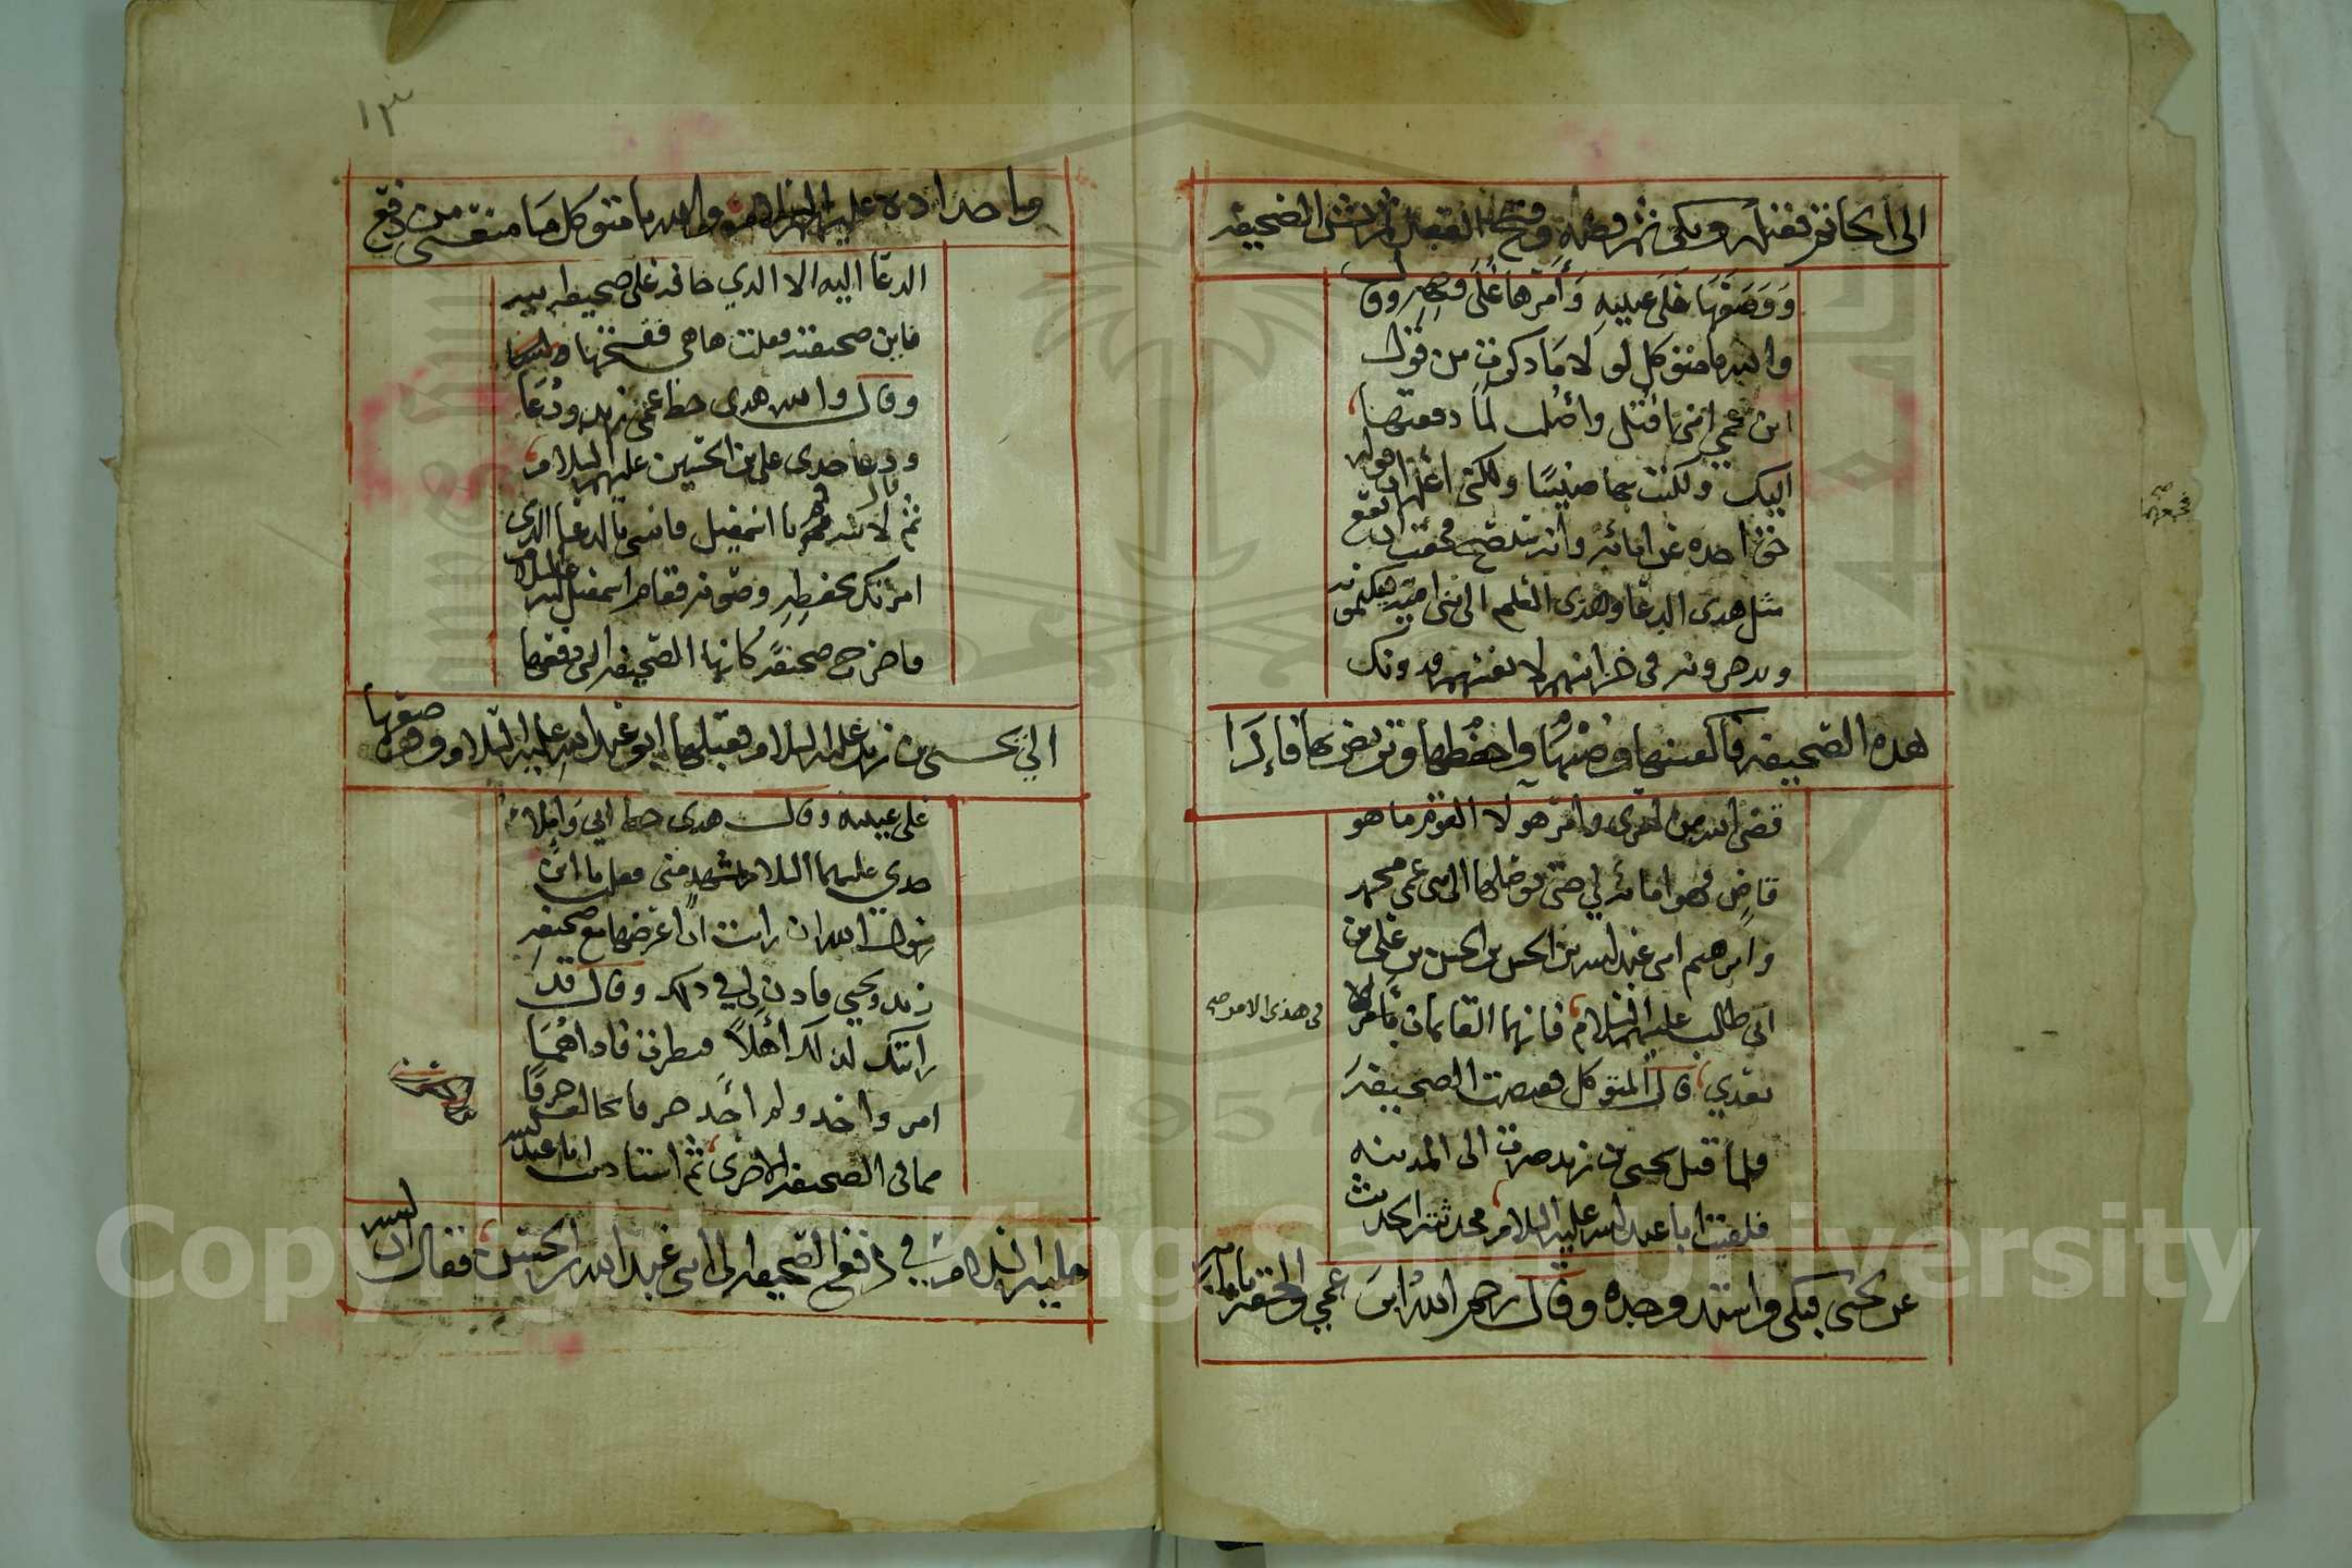 الى الخاتم فقبله وبكى ثم فضه وفتح القفل ثم نشر الصحيفه
ووضعها على عينيه وأمرها على وجهه وقال
والله يا متوكل لولا ما ذكرت من قول
ابن عمي انني اقتل وأصلب لما دفعتها
اليك ولكنت بها ضنينا ولكني اعلم ان قوله
حق اخذه عن ابائه وانه سيصح فخفت ان يقع
مثل هدى الدعا وهدى العلم الى بني اميه فيكتمونه
ويدخرونه في خزائنهم لانفسهم فدونك
هده الصحيفه فاكفنيها وصنها واحفظها وتربص بها فإدا
قضى الله من امري وامر هولا القوم ما هو
قاض فهو امانه لي حتى توصلها الى ابني عمي محمد
وابرهيم ابني عبد الله بن الحسن بن الحسن بن علي بن
ابي طالب عليهم السلام فانهما القائمان
في هدى الامر صح
بعدي قال المتوكل فقبضت الصحيفه
فلما قتل يحيى بن زيد صرت الى المدينه
فلقيت ابا عبد الله عليه السلام فحدثته الحديث
عن يحيى فبكى واشتد وجده وقال رحم الله ابن عمي والحقه بابائه
١٣
واجداده عليهم السلام والله يا متوكل ما منعني من دفع
الدعا اليه الا الدي خافه على صحيفه ابيه
فاين صحيفته فقلت هاهي ففتحها
وقال والله هدى خط عمي زيد ودعا
ودعا جدى علي بن الحسين عليهم السلام
ثم قال لابنه قم يا اسمعيل فاتني بالدعا الدى
امرتك بحفظه وصونه فقام اسمعيل
فاخرج صحيفة كانها الصحيفه التي دفعها
الي يحيى بن زيد عليه السلام فقبلها ابو عبد الله عليه السلام ووضعها
على عينيه وقال هدى خط ابي وإملا
جدي عليهما السلام بمشهد مني فقلت يا ابن
رسول الله ان رايت ان اعرضها مع صحيفه
زيد ويحيى فادن لي في دلك وقال قد
رايتك لدلك أهلاً فنظرت فادا هما
امر واحد ولم أجد حرفا يخالف حرفا
مما في الصحيفه الاخرى ثم استادنت ابا عبد الله
عليه السلام في دفع الصحيفه الى ابني عبد الله بن الحسن فقال ان الله